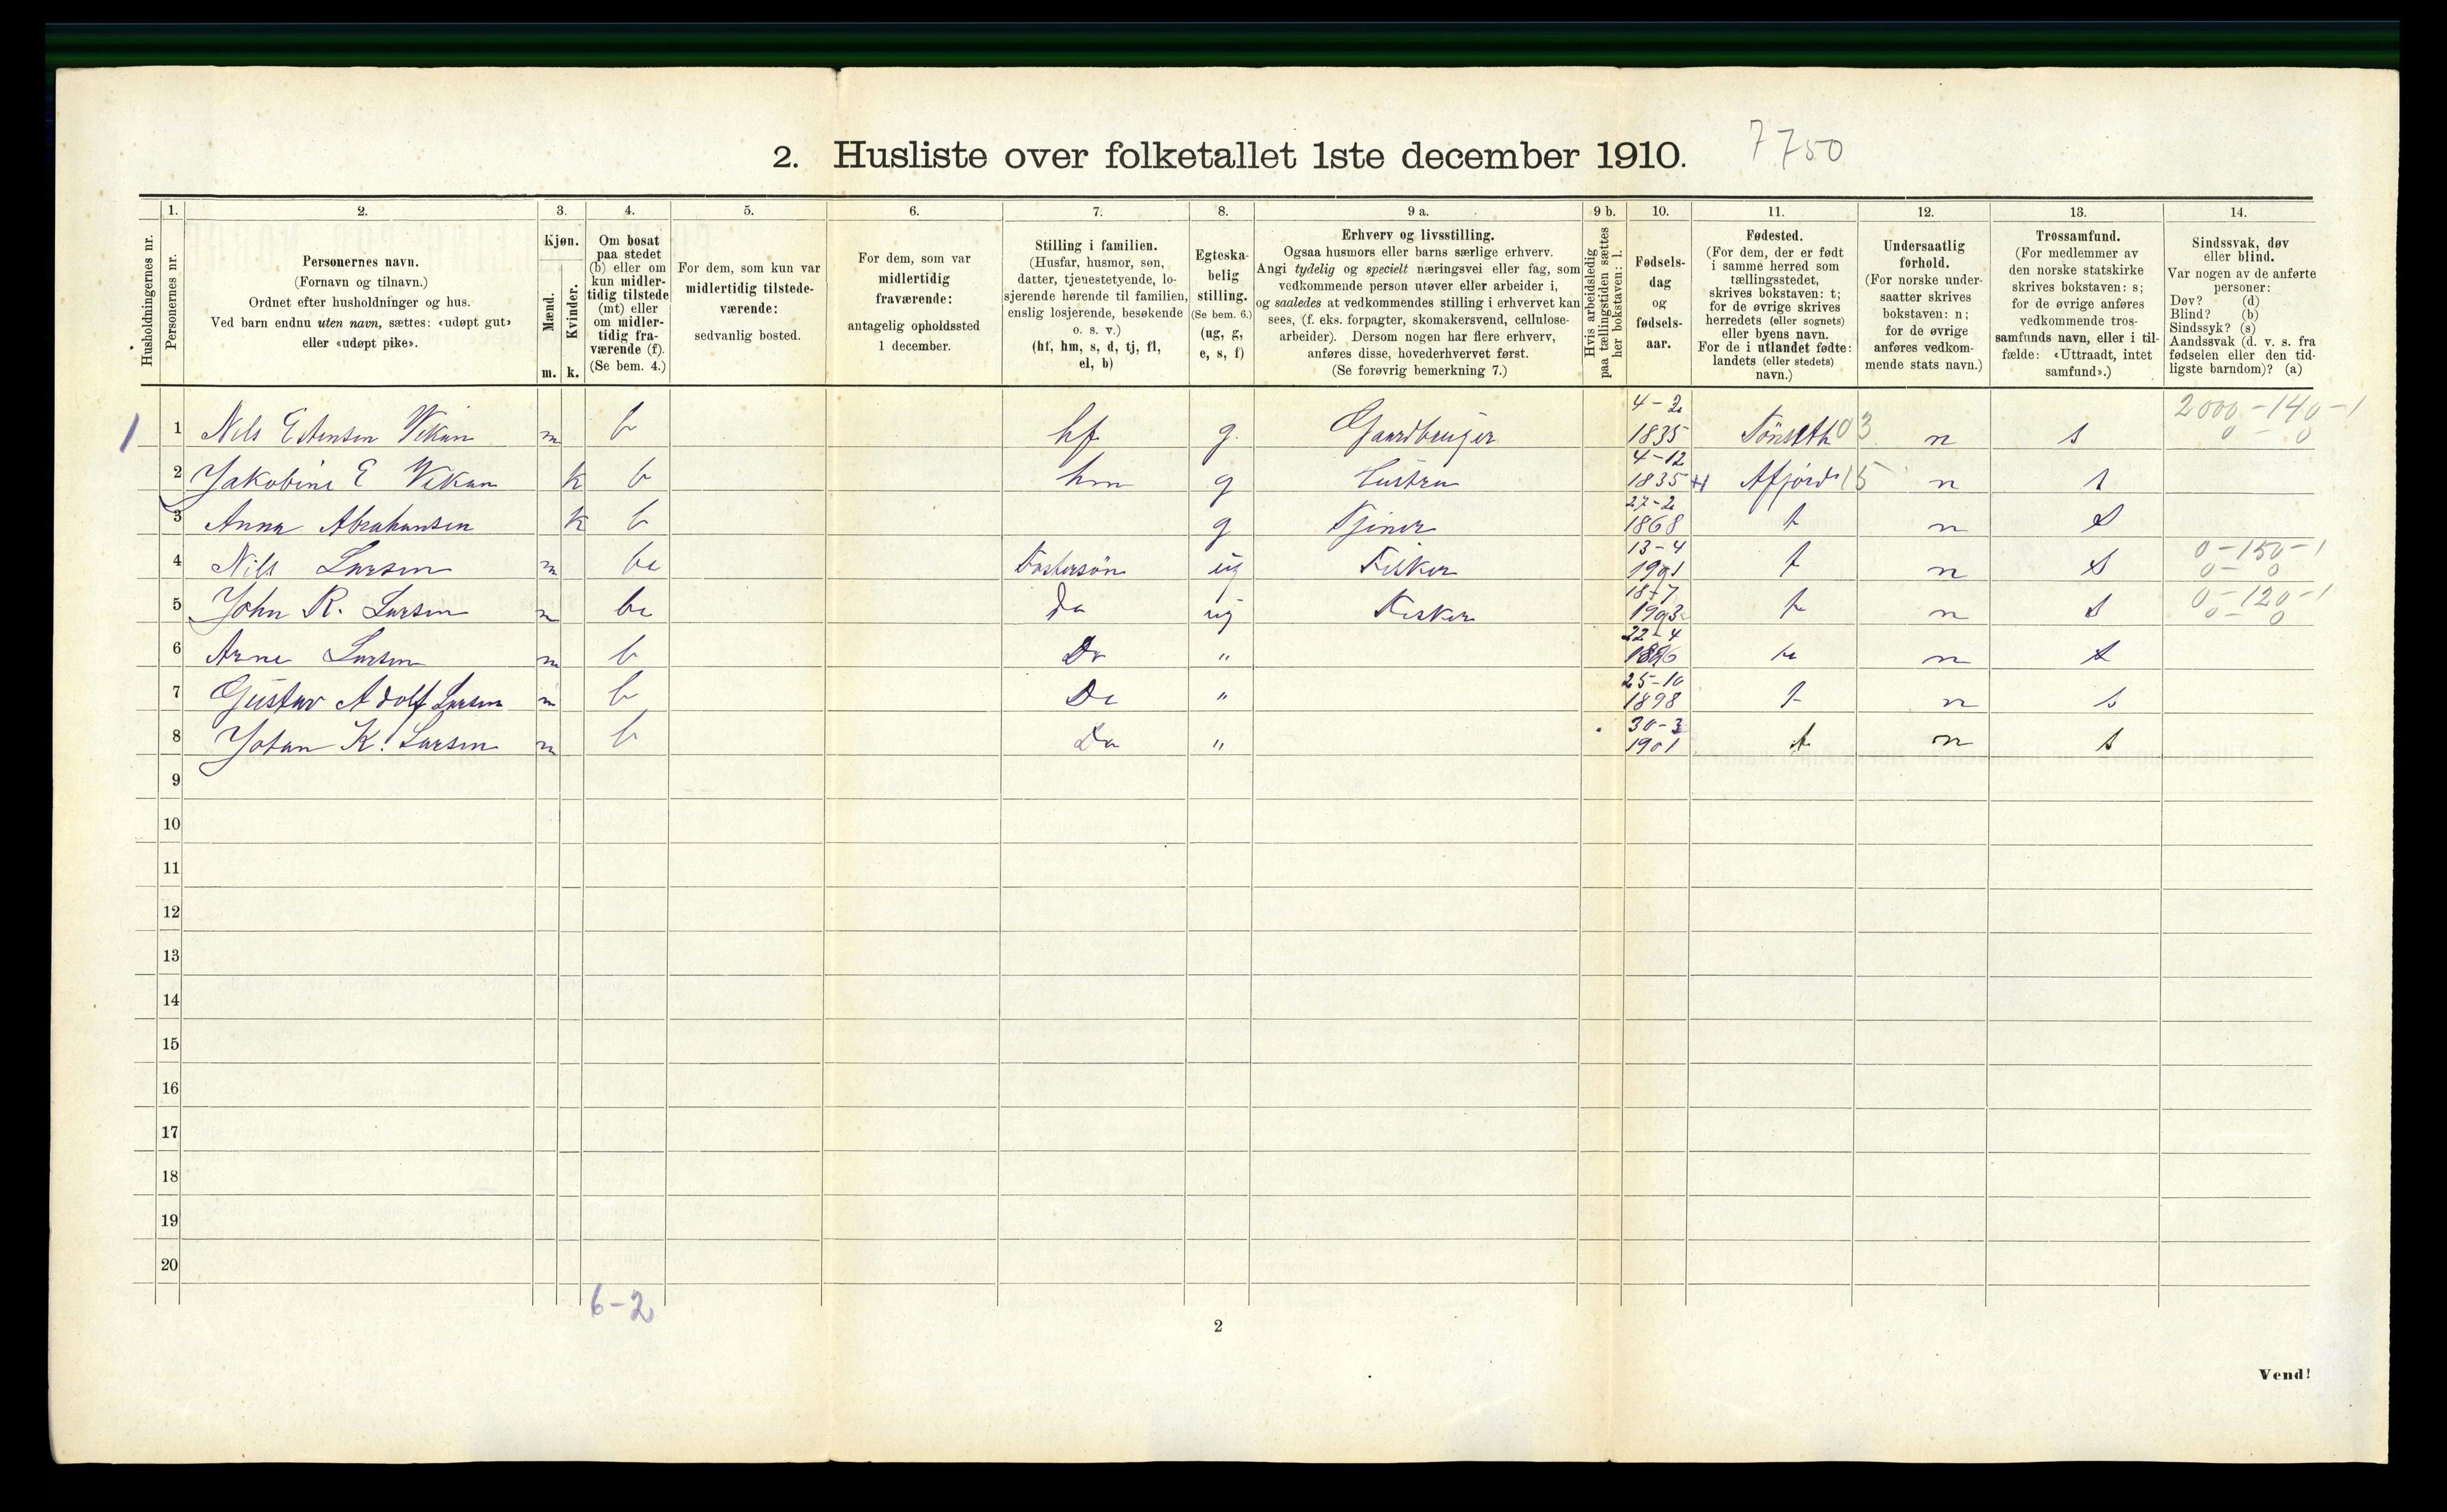 2. Husliste over folketallet 1ste december 1910. 7750
Husholdningernes nr.
1. Personernes nr.
2. Personernes navn.
(Fornavn og tilnavn.)
Ordnet efter husholdninger og hus.
Ved barn endnu uten navn, sættes: «udøpt gut»
eller «udøpt pike».
3. Kjøn.
Mænd. m.
Kvinder. k.
4. Om bosat
paa stedet
(b) eller om
kun midler-
tidig tilstede
(mt) eller
om midler-
tidig fra-
værende (f).
(Se bem. 4.)
5. For dem, som kun var
midlertidig tilstede-
værende:
sedvanlig bosted.
6. For dem, som var
midlertidig
fraværende:
antagelig opholdssted
1 december.
7. Stilling i familien.
(Husfar, husmor, søn,
datter, tjenestetyende, lo-
sjerende hørende til familien,
enslig losjerende, besøkende
o. s. v.)
(hf, hm, s, d, tj, fl,
el, b)
8. Egteska-
belig
stilling.
(Se bem. 6.)
(ug, g,
e, s, f)
9 a. Erhverv og livsstilling.
Ogsaa husmors eller barns særlige erhverv.
Angi tydelig og specielt næringsvei eller fag, som
vedkommende person utøver eller arbeider i,
og saaledes at vedkommendes stilling i erhvervet kan
sees, (f. eks. forpagter, skomakersvend, cellulose-
arbeider). Dersom nogen har flere erhverv,
anføres disse, hovederhvervet først.
(Se forøvrig bemerkning 7.)
9 b. Hvis arbeidsledig
paa tællingstiden sættes
her bokstaven: l.
10. Fødsels-
dag
og
fødsels-
aar.
11. Fødested.
(For dem, der er født
i samme herred som
tællingsstedet,
skrives bokstaven: t;
for de øvrige skrives
herredets (eller sognets)
eller byens navn.
For de i utlandet fødte:
landets (eller stedets)
navn.)
12. Undersaatlig
forhold.
(For norske under-
saatter skrives
bokstaven: n;
for de øvrige
anføres vedkom-
mende stats navn.)
13. Trossamfund.
(For medlemmer av
den norske statskirke
skrives bokstaven: s;
for de øvrige anføres
vedkommende tros-
samfunds navn, eller i til-
fælde: «Uttraadt, intet
samfund».)
14. Sindssvak, døv
eller blind.
Var nogen av de anførte
personer:
Døv? (d)
Blind? (b)
Sindssyk? (s)
Aandssvak (d. v. s. fra
fødselen eller den tid-
ligste barndom)? (a)
1 1 Nils Estensen Vikan m b hf g. Gaardbruger 4-2 1835 03 n s 2000-140-1 0-0
2 Jakobine E Vikan k b hm g Hustru 4-12 1835 Afjord 15 n s
3 Anna Abrahamsen k b g Tjener 27-2 1868 t n s
4 Nils Larsen m b Fostersøn ug Fisker 13-4 t n s 0-150-1 0-0
5 John R. Larsen m b Do ug Fisker 18-7 t n s 0-120-1 0-0
6 Arne Larsen m b Do " 22-4 1896 t n s
7 Gustav Adolf Larsen m b Do " 25-10 1898 t n s
8 Johan K. Larsen m b Do " 30-3 1901 t n s
9
10
11
12
13
14
15
16
17
18
19
20
6-2
2
Vend!